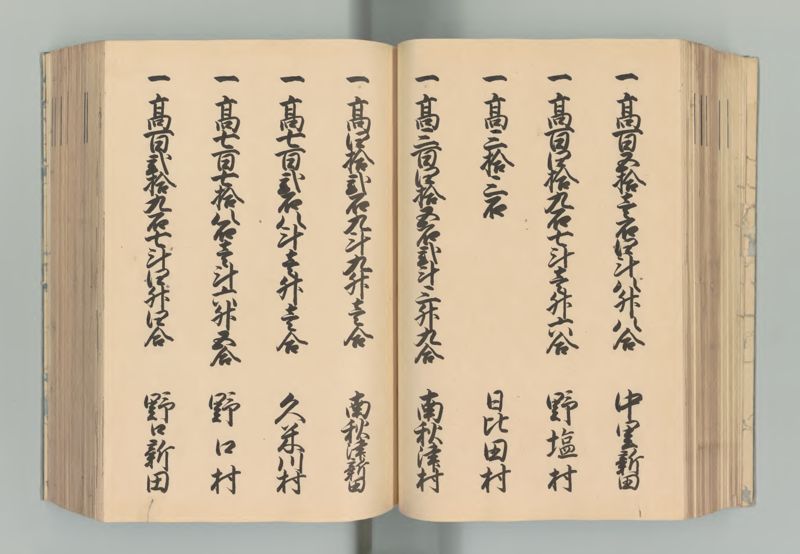 一 高百五拾壱石四斗八升八合 中里新田
一 高百四拾九石七斗壱升六合 野塩村
一 高三拾三石 日比田村
一 高三百四拾五石弐斗三升九合 南秋津村
一 高四拾弐石九斗九升壱合 南秋津新田
一 高七百弐石八斗壱升壱合 久米川村
一 高七百七拾八石壱斗六升五合 野口村
一 高百弐拾九石七斗四升四合 野口新田